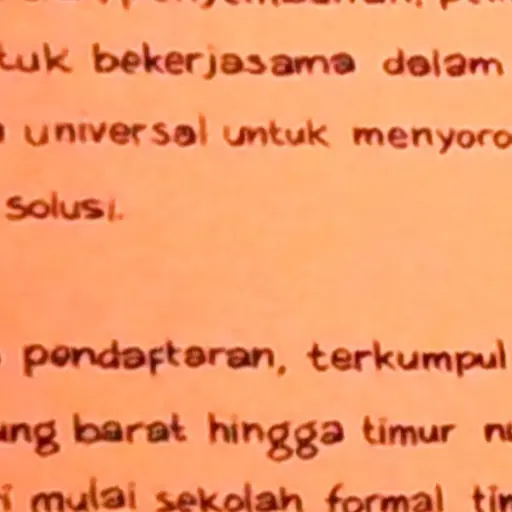 tuk bekerjasama dalam
universal untuk menyoro
solusi.
pendaftaran, terkumpul
ung barat hingga timur
i mulai sekolah formal tin